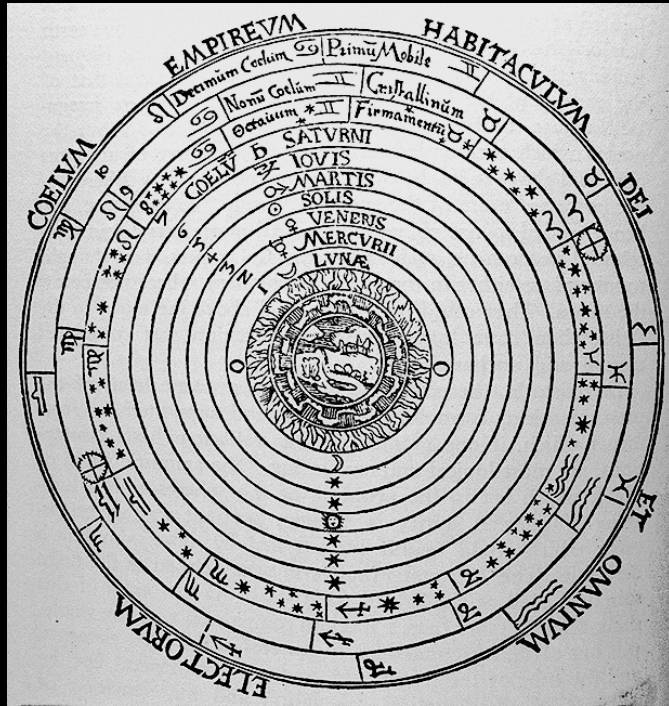 COELVM EMPIREVM HABITACVLVM DEI ET OMNIVM ELECTORVM
Decimum Coelum Primũ Mobile
Nonũ Coelum Cristallinum
Octauum Firmamentũ
COELṼ SATVRNI
IOVIS
MARTIS
SOLIS
VENERIS
MERCVRII
LVNÆ
7
6
5
4
3
2
1